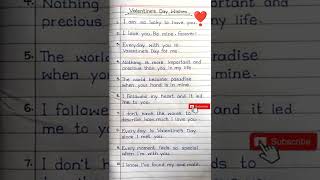 Valentine's Day Wishes
1. I am so lucky to have you.
2. I love you. Be mine forever.
3. Everyday with you is
Valentine's Day for me.
4. Nothing is more important and
precious than you in my life.
5. The world become paradise
when your hand is in mine.
6. I followed my heart and it led
me to you.
SUBSCRIBE
7. I don't have the words to
describe how much I love you.
8. Everyday is Valentine's Day
since I met you.
9. Every moment feels so special
when I'm with you.
10. I know I've found my soul mate.
4.
precious
5.
6.
7. I don't h
and
life.
it led
Subscribe
to